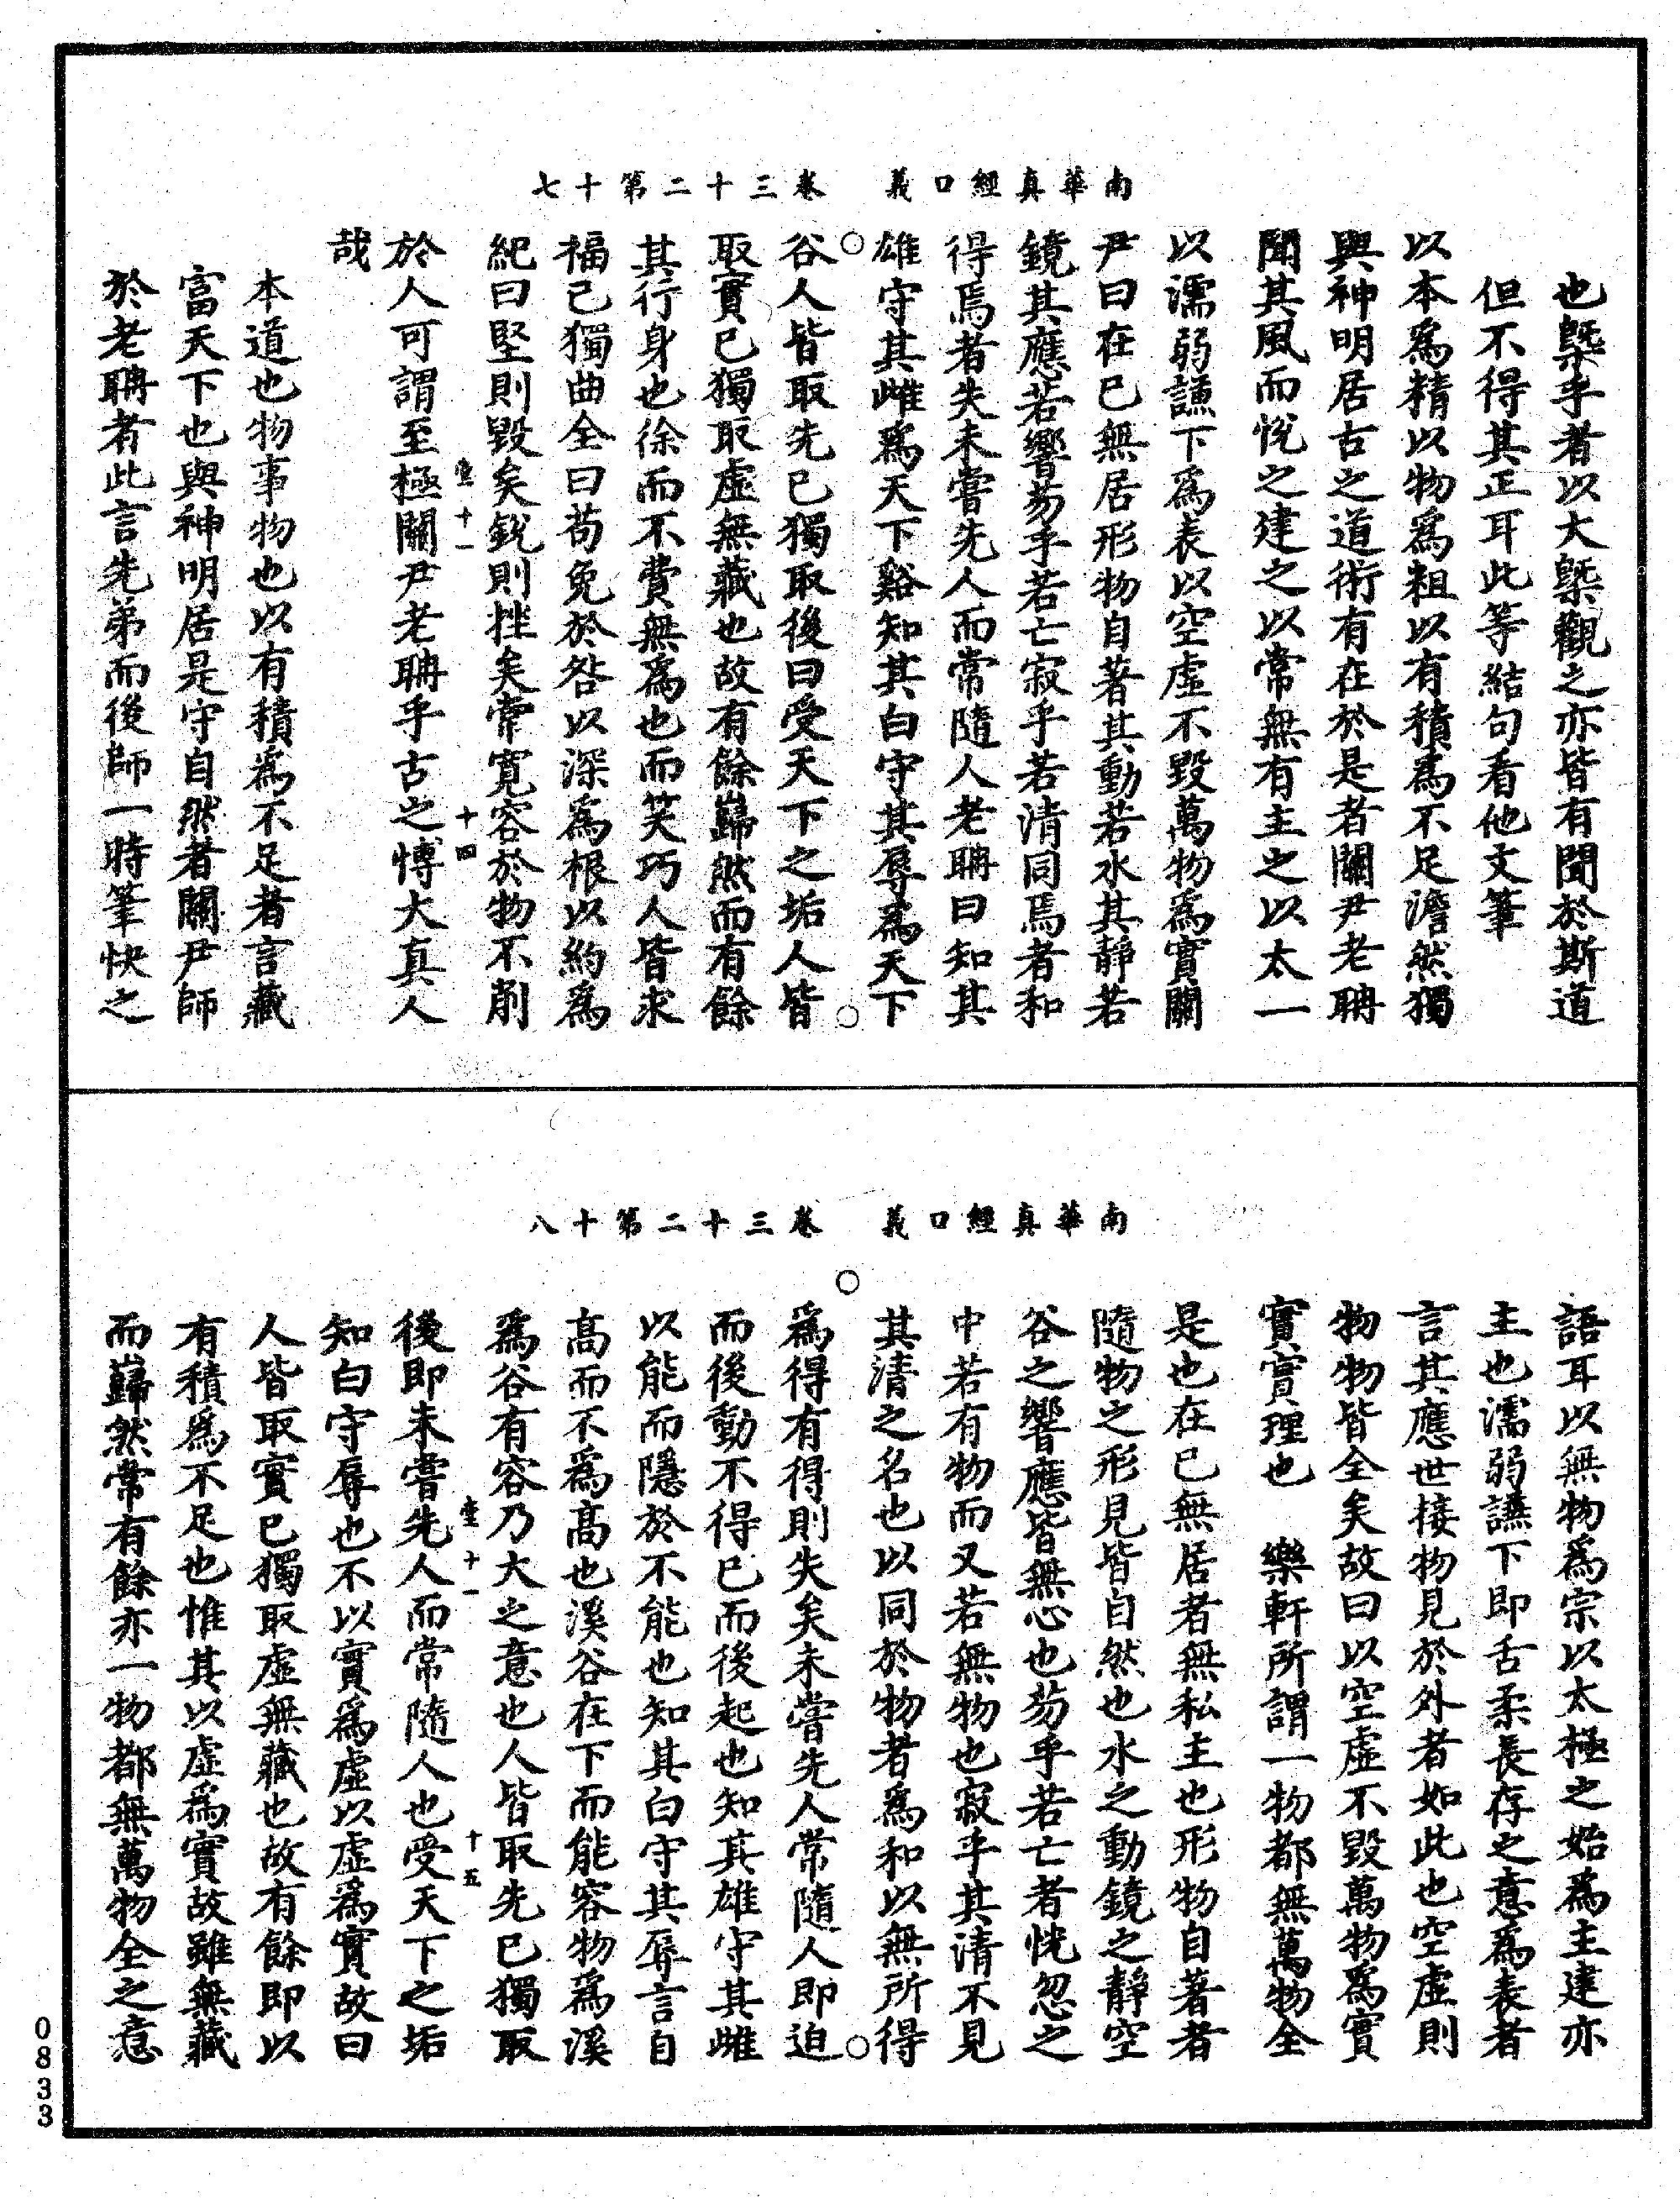 南華真經口義　卷三十二第十七
也槩乎者以大槩觀之亦皆有聞於斯道
但不得其正耳此等結句看他文筆
以本爲精以物爲粗以有積爲不足澹然獨
與神明居古之道術有在於是者關尹老聃
聞其風而悅之建之以常無有主之以太一
以濡弱謙下爲表以空虛不毀萬物爲實關
尹曰在已無居形物自著其動若水其靜若
鏡其應若響芴乎若亡寂乎若清同焉者和
得焉者失未嘗先人而常隨人老聃曰知其
雄守其雌爲天下谿知其白守其辱爲天下
谷人皆取先已獨取後曰受天下之垢人皆
取實已獨取虛無藏也故有餘巋然而有餘
其行身也徐而不費無爲也而笑巧人皆求
福已獨曲全曰苟免於咎以深爲根以約爲
紀曰堅則毀矣銳則挫矣常寬容於物不削
十一
十四
於人可謂至極關尹老聃乎古之博大真人
哉
本道也物事物也以有積爲不足者言藏
富天下也與神明居是守自然者關尹師
於老聃者此言先弟而後師一時筆快之
南華真經口義　卷三十二第十八
語耳以無物爲宗以太極之始爲主建亦
主也濡弱謙下即舌柔長存之意爲表者
言其應世接物見於外者如此也空虛則
物物皆全矣故曰以空虛不毀萬物爲實
實實理也　樂軒所謂一物都無萬物全
是也在已無居者無私主也形物自著者
隨物之形見皆自然也水之動鏡之靜空
谷之響應皆無心也芴乎若亡者恍忽之
中若有物而又若無物也寂乎其清不見
其清之名也以同於物者爲和以無所得
爲得有得則失矣未嘗先人常隨人即迫
而後動不得已而後起也知其雄守其雌
以能而隱於不能也知其白守其辱言自
高而不爲高也溪谷在下而能容物爲溪
爲谷有容乃大之意也人皆取先已獨取
十一
十五
後即未嘗先人而常隨人也受天下之垢
知白守辱也不以實爲虛以虛爲實故曰
人皆取實已獨取虛無藏也故有餘即以
有積爲不足也惟其以虛爲實故雖無藏
而巋然常有餘亦一物都無萬物全之意
0833